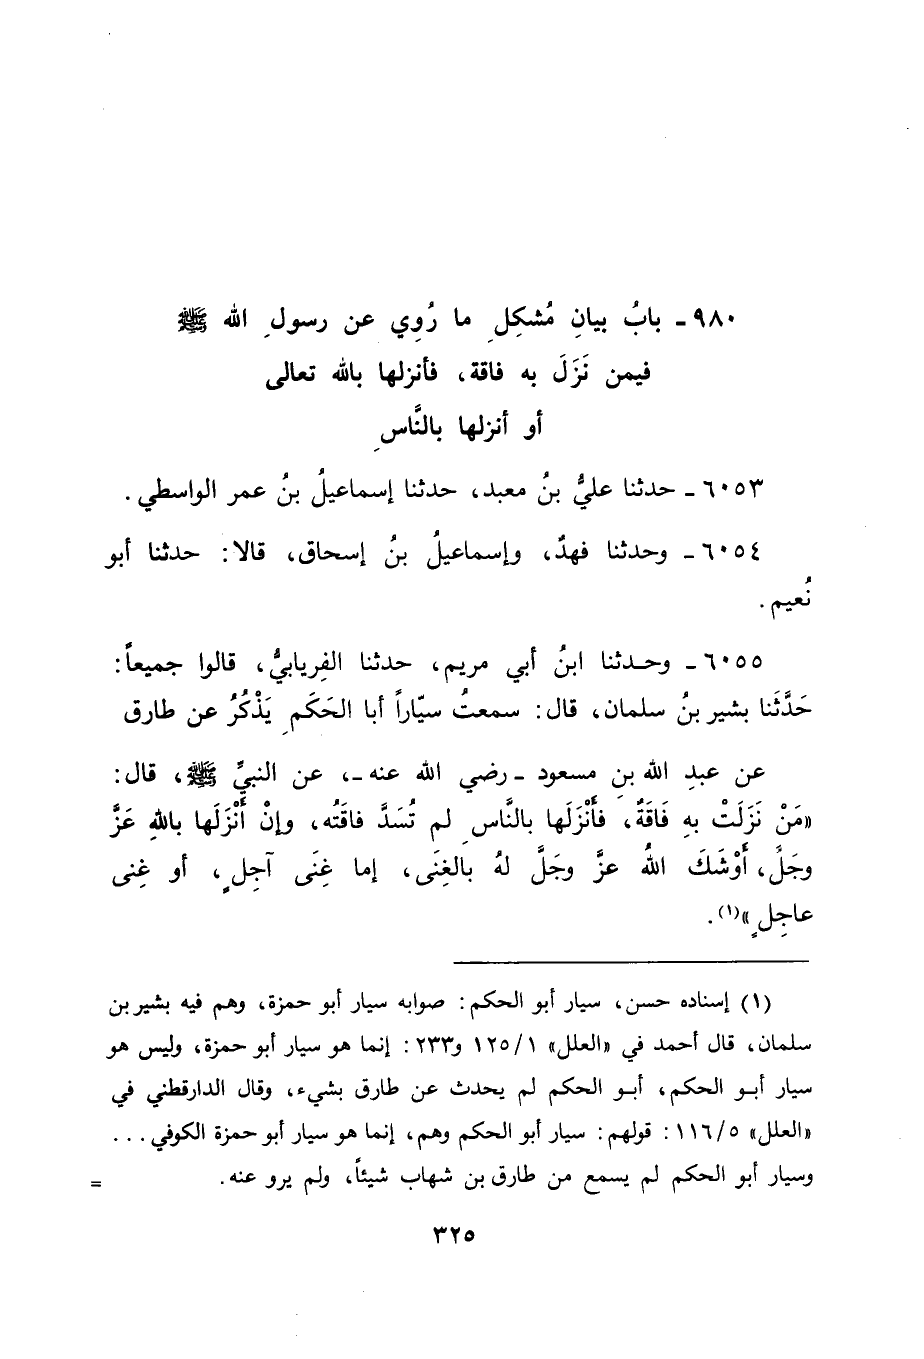 ٩٨٠ ـ بابُ بيانِ مُشكِلِ ما رُوِي عن رسولِ الله ﷺ
فيمن نَزَلَ به فاقة، فأنزلها بالله تعالى
أو أنزلها بالنَّاسِ
٦٠٥٣ ـ حدثنا عليُّ بنُ معبد، حدثنا إسماعيلُ بنُ عمر الواسطي.
٦٠٥٤ ـ وحدثنا فهدٌ، وإسماعيلُ بنُ إسحاق، قالا: حدثنا أبو
نُعيم.
٦٠٥٥ ـ وحدثنا ابنُ أبي مريم، حدثنا الفِريابيُّ، قالوا جميعاً:
حَدَّثَنا بشير بنُ سلمان، قال: سمعتُ سيّاراً أبا الحَكَمِ يَذْكُرُ عن طارق
عن عبدِ الله بنِ مسعود ـ رضي الله عنه ـ، عن النبيِّ ﷺ، قال:
«مَنْ نَزَلَتْ بِهِ فَاقَةٌ، فأَنْزَلَها بالنَّاسِ لم تُسَدَّ فاقَتُه، وإنْ أَنْزَلَها باللهِ عَزَّ
وجَلَّ، أَوْشَكَ اللهُ عزَّ وجَلَّ لهُ بالغِنَى، إما غِنَى آجِلٍ، أو غِنى
عاجِلٍ»(١).
(١) إسناده حسن، سيار أبو الحكم: صوابه سيار أبو حمزة، وهم فيه بشير بن
سلمان، قال أحمد في «العلل» ١/١٢٥ و٢٣٣: إنما هو سيار أبو حمزة، وليس هو
سيار أبو الحكم، أبو الحكم لم يحدث عن طارق بشيء، وقال الدارقطني في
«العلل» ٥/١١٦: قولهم: سيار أبو الحكم وهم، إنما هو سيار أبو حمزة الكوفي...
وسيار أبو الحكم لم يسمع من طارق بن شهاب شيئاً، ولم يرو عنه. =
٣٢٥